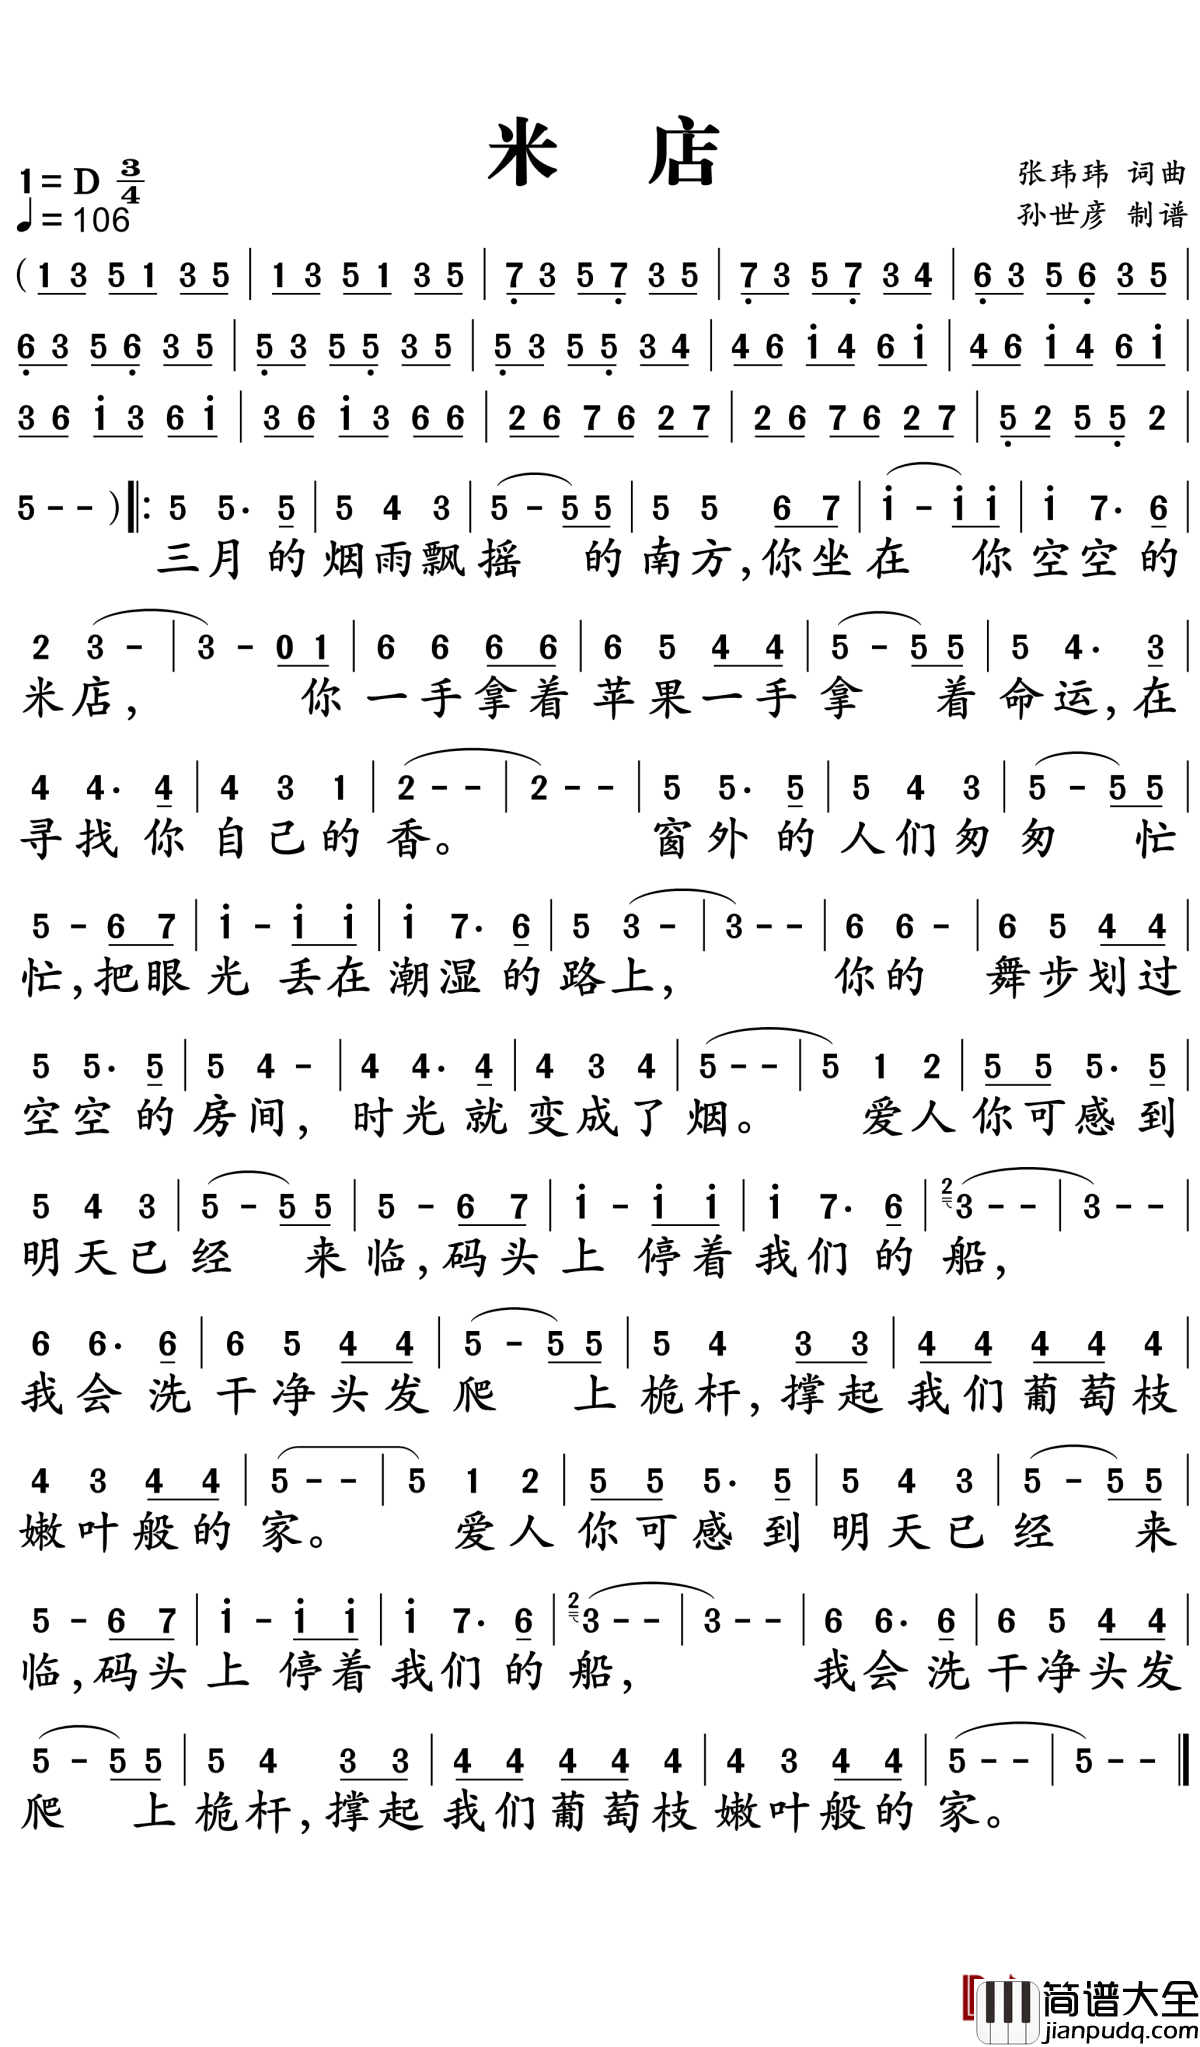 米 店
1=D 3/4
张玮玮 词曲
♩=106
孙世彦 制谱
(1 3 5 1 3 5 | 1 3 5 1 3 5 | 7̣ 3 5 7̣ 3 5 | 7̣ 3 5 7̣ 3 4 | 6̣ 3 5 6̣ 3 5 |
6̣ 3 5 6̣ 3 5 | 5̣ 3 5 5̣ 3 5 | 5̣ 3 5 5̣ 3 4 | 4 6 i 4 6 i | 4 6 i 4 6 i |
3 6 i 3 6 i | 3 6 i 3 6 6 | 2 6 7 6 2 7 | 2 6 7 6 2 7 | 5̣ 2 5 5̣ 2 |
5 - - ) ‖: 5 5. 5 | 5 4 3 | 5 - 5 5 | 5 5 6 7 | i - i i | i 7. 6 |
三月的烟雨飘摇 的南方,你坐在 你空空的
2 3 - | 3 - 0 1 | 6 6 6 6 | 6 5 4 4 | 5 - 5 5 | 5 4. 3 |
米店, 你一手拿着苹果一手拿 着命运,在
4 4. 4 | 4 3 1 | 2 - - | 2 - - | 5 5. 5 | 5 4 3 | 5 - 5 5 |
寻找你自己的香。 窗外的人们匆匆 忙
5 - 6 7 | i - i i | i 7. 6 | 5 3 - | 3 - - | 6 6 - | 6 5 4 4 |
忙,把眼光丢在潮湿的路上, 你的 舞步划过
5 5. 5 | 5 4 - | 4 4. 4 | 4 3 4 | 5 - - | 5 1 2 | 5 5 5. 5 |
空空的房间, 时光就变成了烟。 爱人你可感到
5 4 3 | 5 - 5 5 | 5 - 6 7 | i - i i | i 7. 6 | 2 3 - - | 3 - - |
明天已经 来临,码头上 停着我们的船,
6 6. 6 | 6 5 4 4 | 5 - 5 5 | 5 4 3 3 | 4 4 4 4 4 |
我会洗干净头发爬 上桅杆,撑起我们葡萄枝
4 3 4 4 | 5 - - | 5 1 2 | 5 5 5. 5 | 5 4 3 | 5 - 5 5 |
嫩叶般的家。 爱人你可感到明天已经 来
5 - 6 7 | i - i i | i 7. 6 | 2 3 - - | 3 - - | 6 6. 6 | 6 5 4 4 |
临,码头上 停着我们的船, 我会洗干净头发
5 - 5 5 | 5 4 3 3 | 4 4 4 4 4 | 4 3 4 4 | 5 - - | 5 - - ‖
爬 上桅杆,撑起我们葡萄枝嫩叶般的家。
简谱大全
jianpudq.com